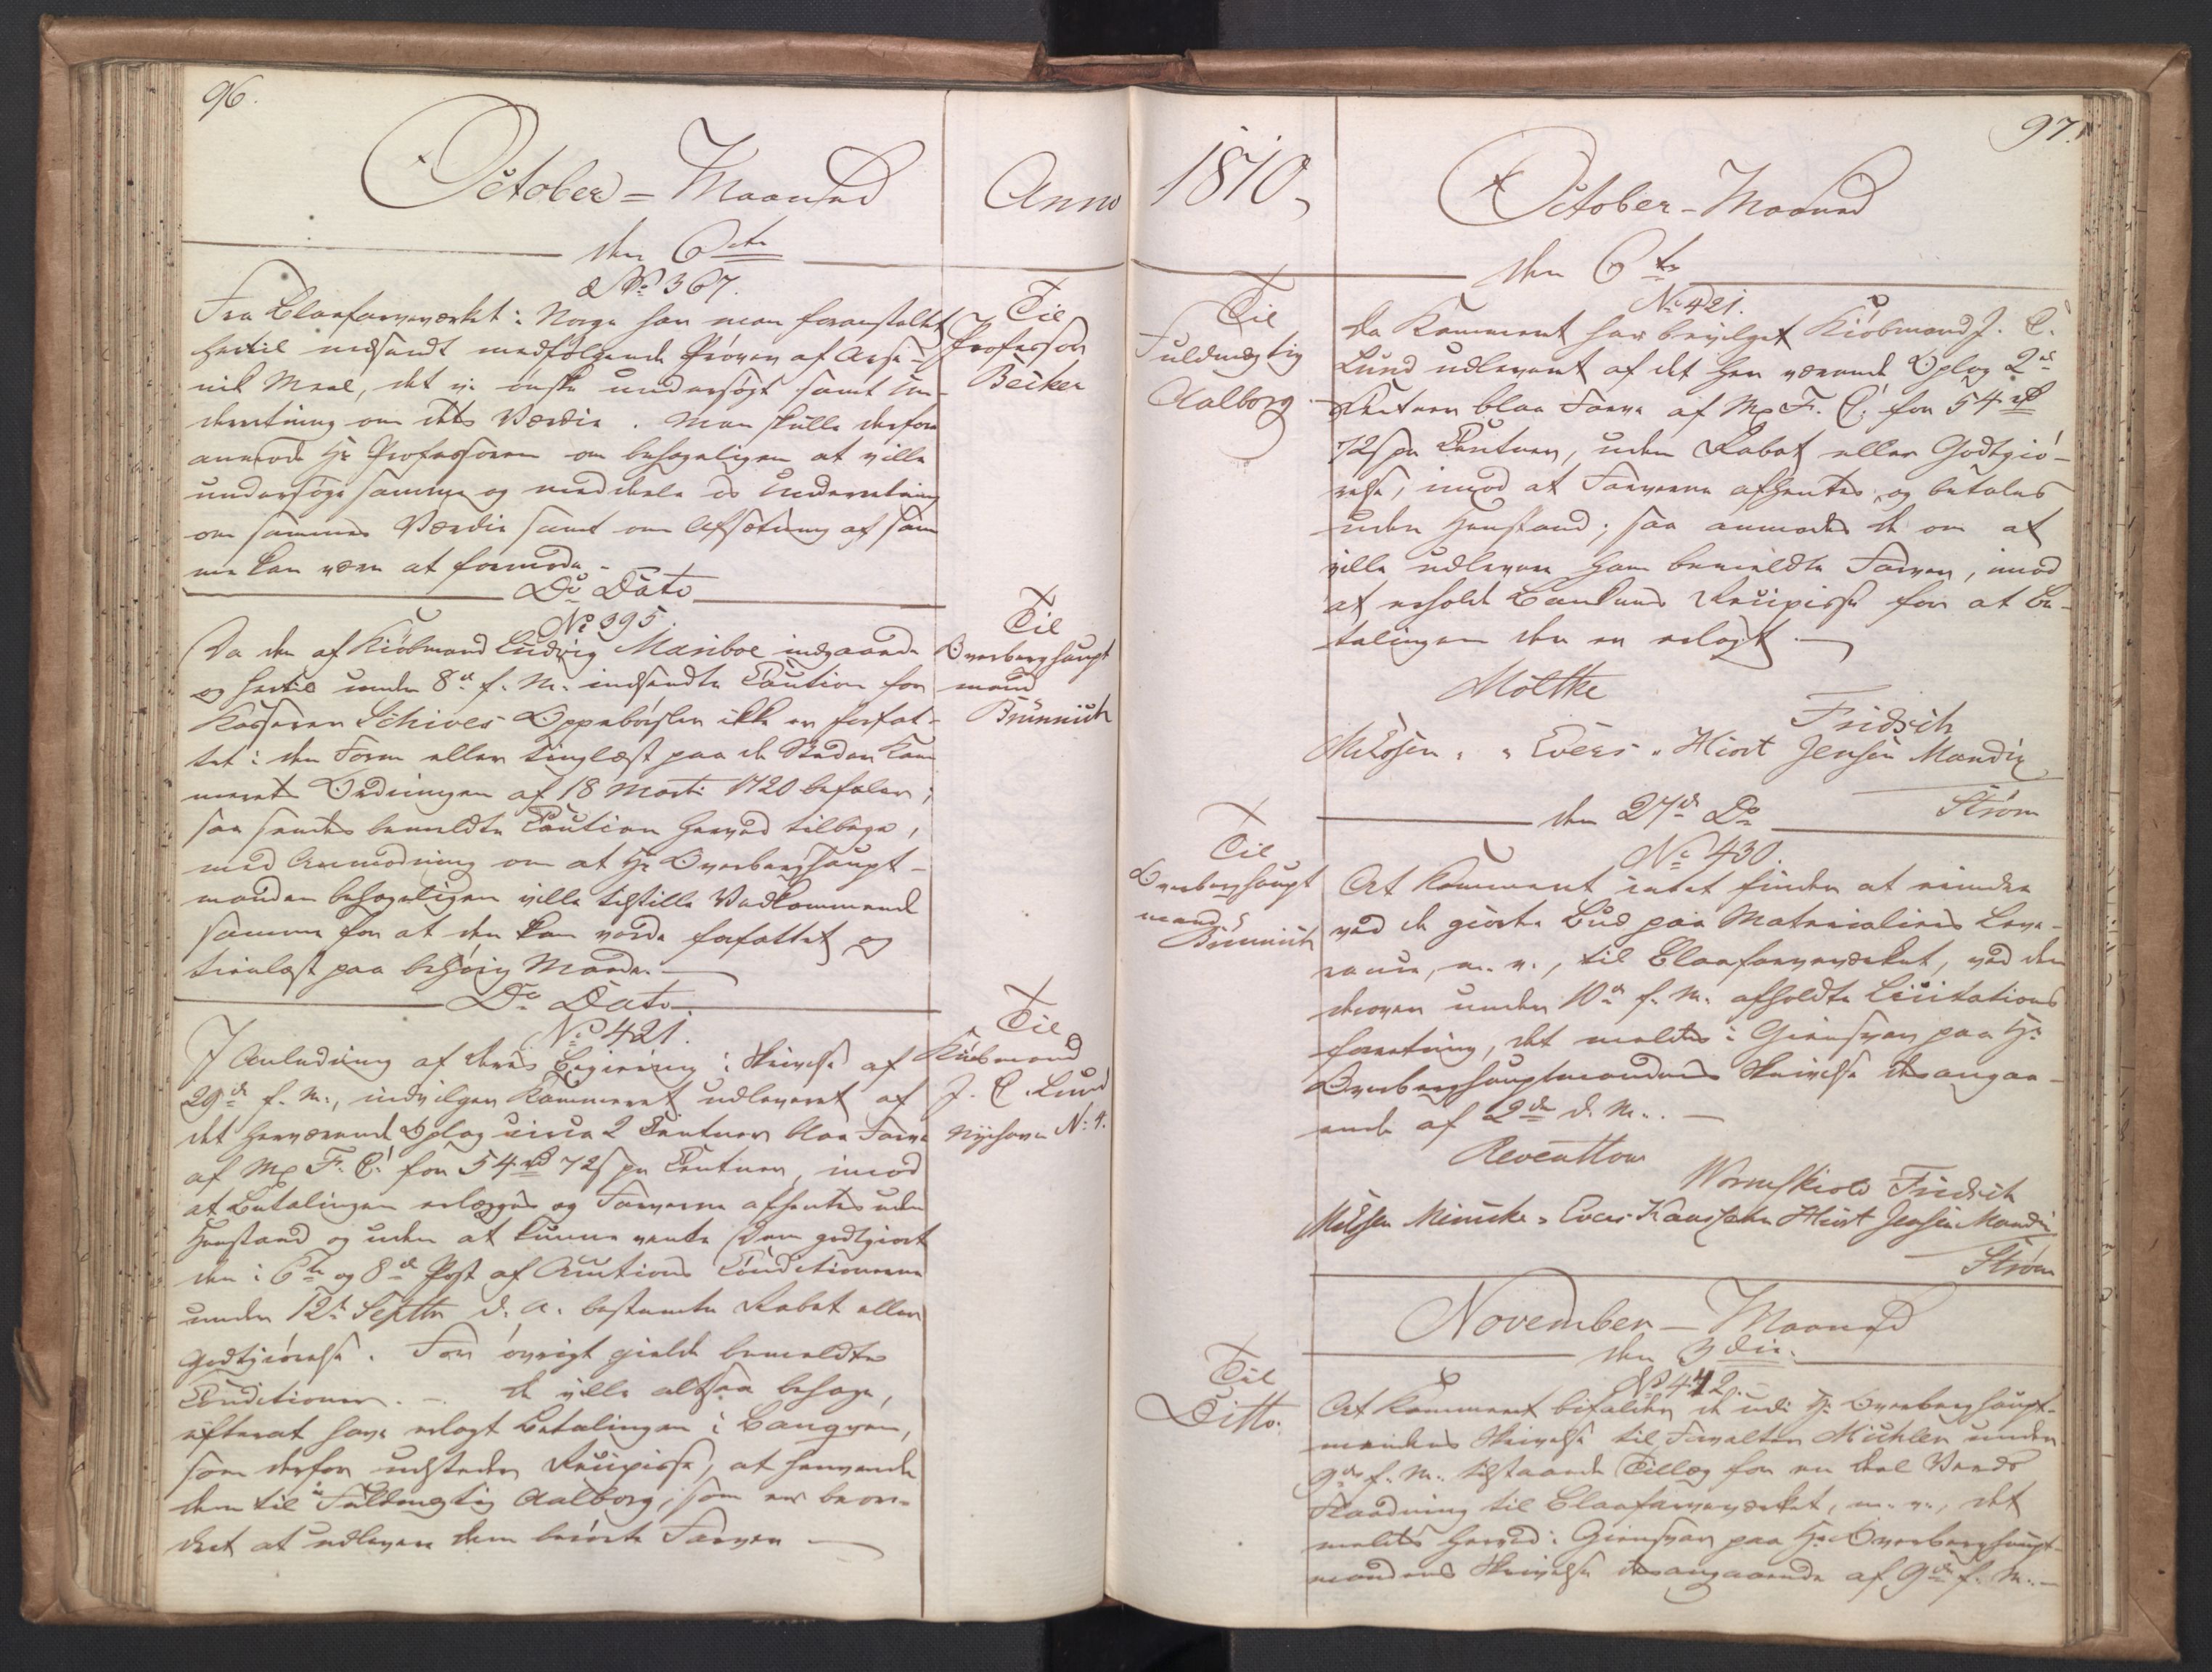 96.
October = Maaned
Anno
den 6te
No 367.
Til
Professor
Becker
Fra Blaafarveværket i Norge har man foranstaltet
hertil nedsendt medfølgende Prøver af Arse-
nik Meel, det vi ønske undersøgt samt Un-
derretning om dets Værdie. Man skulle derfor
anmode Hr Professoren om behageligen at ville
undersøge samme og meddeele os Underretning
om sammes Værdie samt om Afsætning af sam
me kan være at formode.-
Do Dato
No 395.
Til
Overberghaupt
mand
Brünnich
Da den af Kiøbmand Ludvig Mariboe indgaaende
og hertil under 8de f. M. indsendte Caution for
Kasserer Schives Oppebørsler ikke er forfat-
tet i den Form eller tinglæst paa de Steder Kam
merets Ordningen af 18 Martii 1720 befaler;
saa sendes bemeldte Caution herved tilbage,
med Anmodning om at Hr Overberghaupt-
manden behageligen ville tilstille Vedkommende
samme for at den kan vorde forfattet og
tinglæst paa behørig Maade.-
Do Dato
No 421.
Til
Kiøbmand
J. C. Lund
Nyehavn N: 4.
I Anledning af deres Begiering i Skrivelse af
29de f. M:, indvilger Kammeret udleveret af
det herværende Oplag circa 2 Centner blaa Farve
af Mp F. C: for 54 rd 72 s pr Centner, imod
at Betalingen erlægges og Farverne afhentes uden
Henstand og uden at kunne vente Dem godtgiort
den i 6te og 8de Post af Auctions Conditionerne
under 12te Septbr d. A. bestemte Rabat eller
Godtgiørelse. For øvrigt gielde bemeldte
Conditioner. - De ville altsaa behage,
efterat have erlagt Betalingen i Banqven,
som derfor udsteder Recipisse, at henvende
dem til Fuldmægtig Aalborg, som er beor-
dret at udlevere dem berørte Farver
1810,
97.
October - Maaned
den 6te
No 421.
Til
Fuldmægtig
Aalborg
Da Kammeret har bevilget Kiøbmand J. C.
Lund udleveret af det her værende Oplag 2de
Centner blaa Farve af Mp F. C: for 54 rd
72 s pr Centner, uden Rabat eller Godtgiø-
relse, imod at Farverne afhentes og betales
uden Henstand; saa anmodes De om at
ville udlevere ham bemeldte Farver, imod
at erholde Bankens Recipisse for at Be-
talingen der er erlagt.
Moltke
Fridsch
Meldsen. " Evers " Hiort Jensen Mandix
Strøm
den 27de Do
No 430.
Til
Overberghaupt
mand
Brünnich
At Kammeret intet finder at erindre
ved de giorte Bud paa Materialiers Leve-
rance, m. v., til Blaafarveværket, ved den
derover under 10de f. M. afholdte Licitations
forretning, det meldes i Giensvar paa Hr
Overberghauptmandens Skrivelse desangaa-
ende af 2den d. M. -
Reventlow
Wormskiold Fridsch
Meldsen Meinicke " Evers Hiort Jensen Mandix
Strøm
November - Maaned
den 3die.
No 442.
Til
Ditto.
At Kammeret bifalder de udi Hr Overberghaupt-
mandens Skrivelse til Forvalter Michler under
9de f. M. tilstaaede Tillæg for en Deel Veeds
Flaadning til Blaafarveværket, m. v., det
meldes herved i Giensvar paa Hr Overberghaupt-
mandens Skrivelse desangaaende af 9de f. M.-